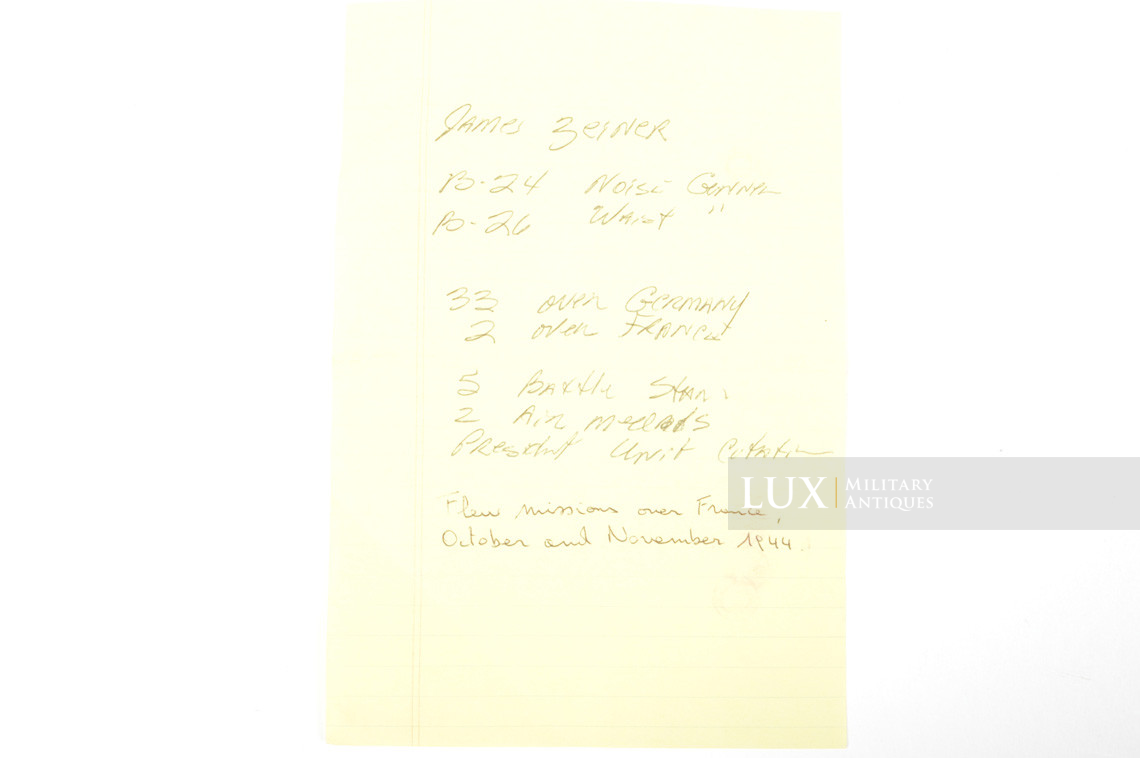 James Zeiner
B-24 Noise Gunner
B-26 Waist "
33 over Germany
2 over France
5 Battle Stars
2 Air Medals
President Unit Citation
Flew missions over France,
October and November 1944.
LUX MILITARY ANTIQUES